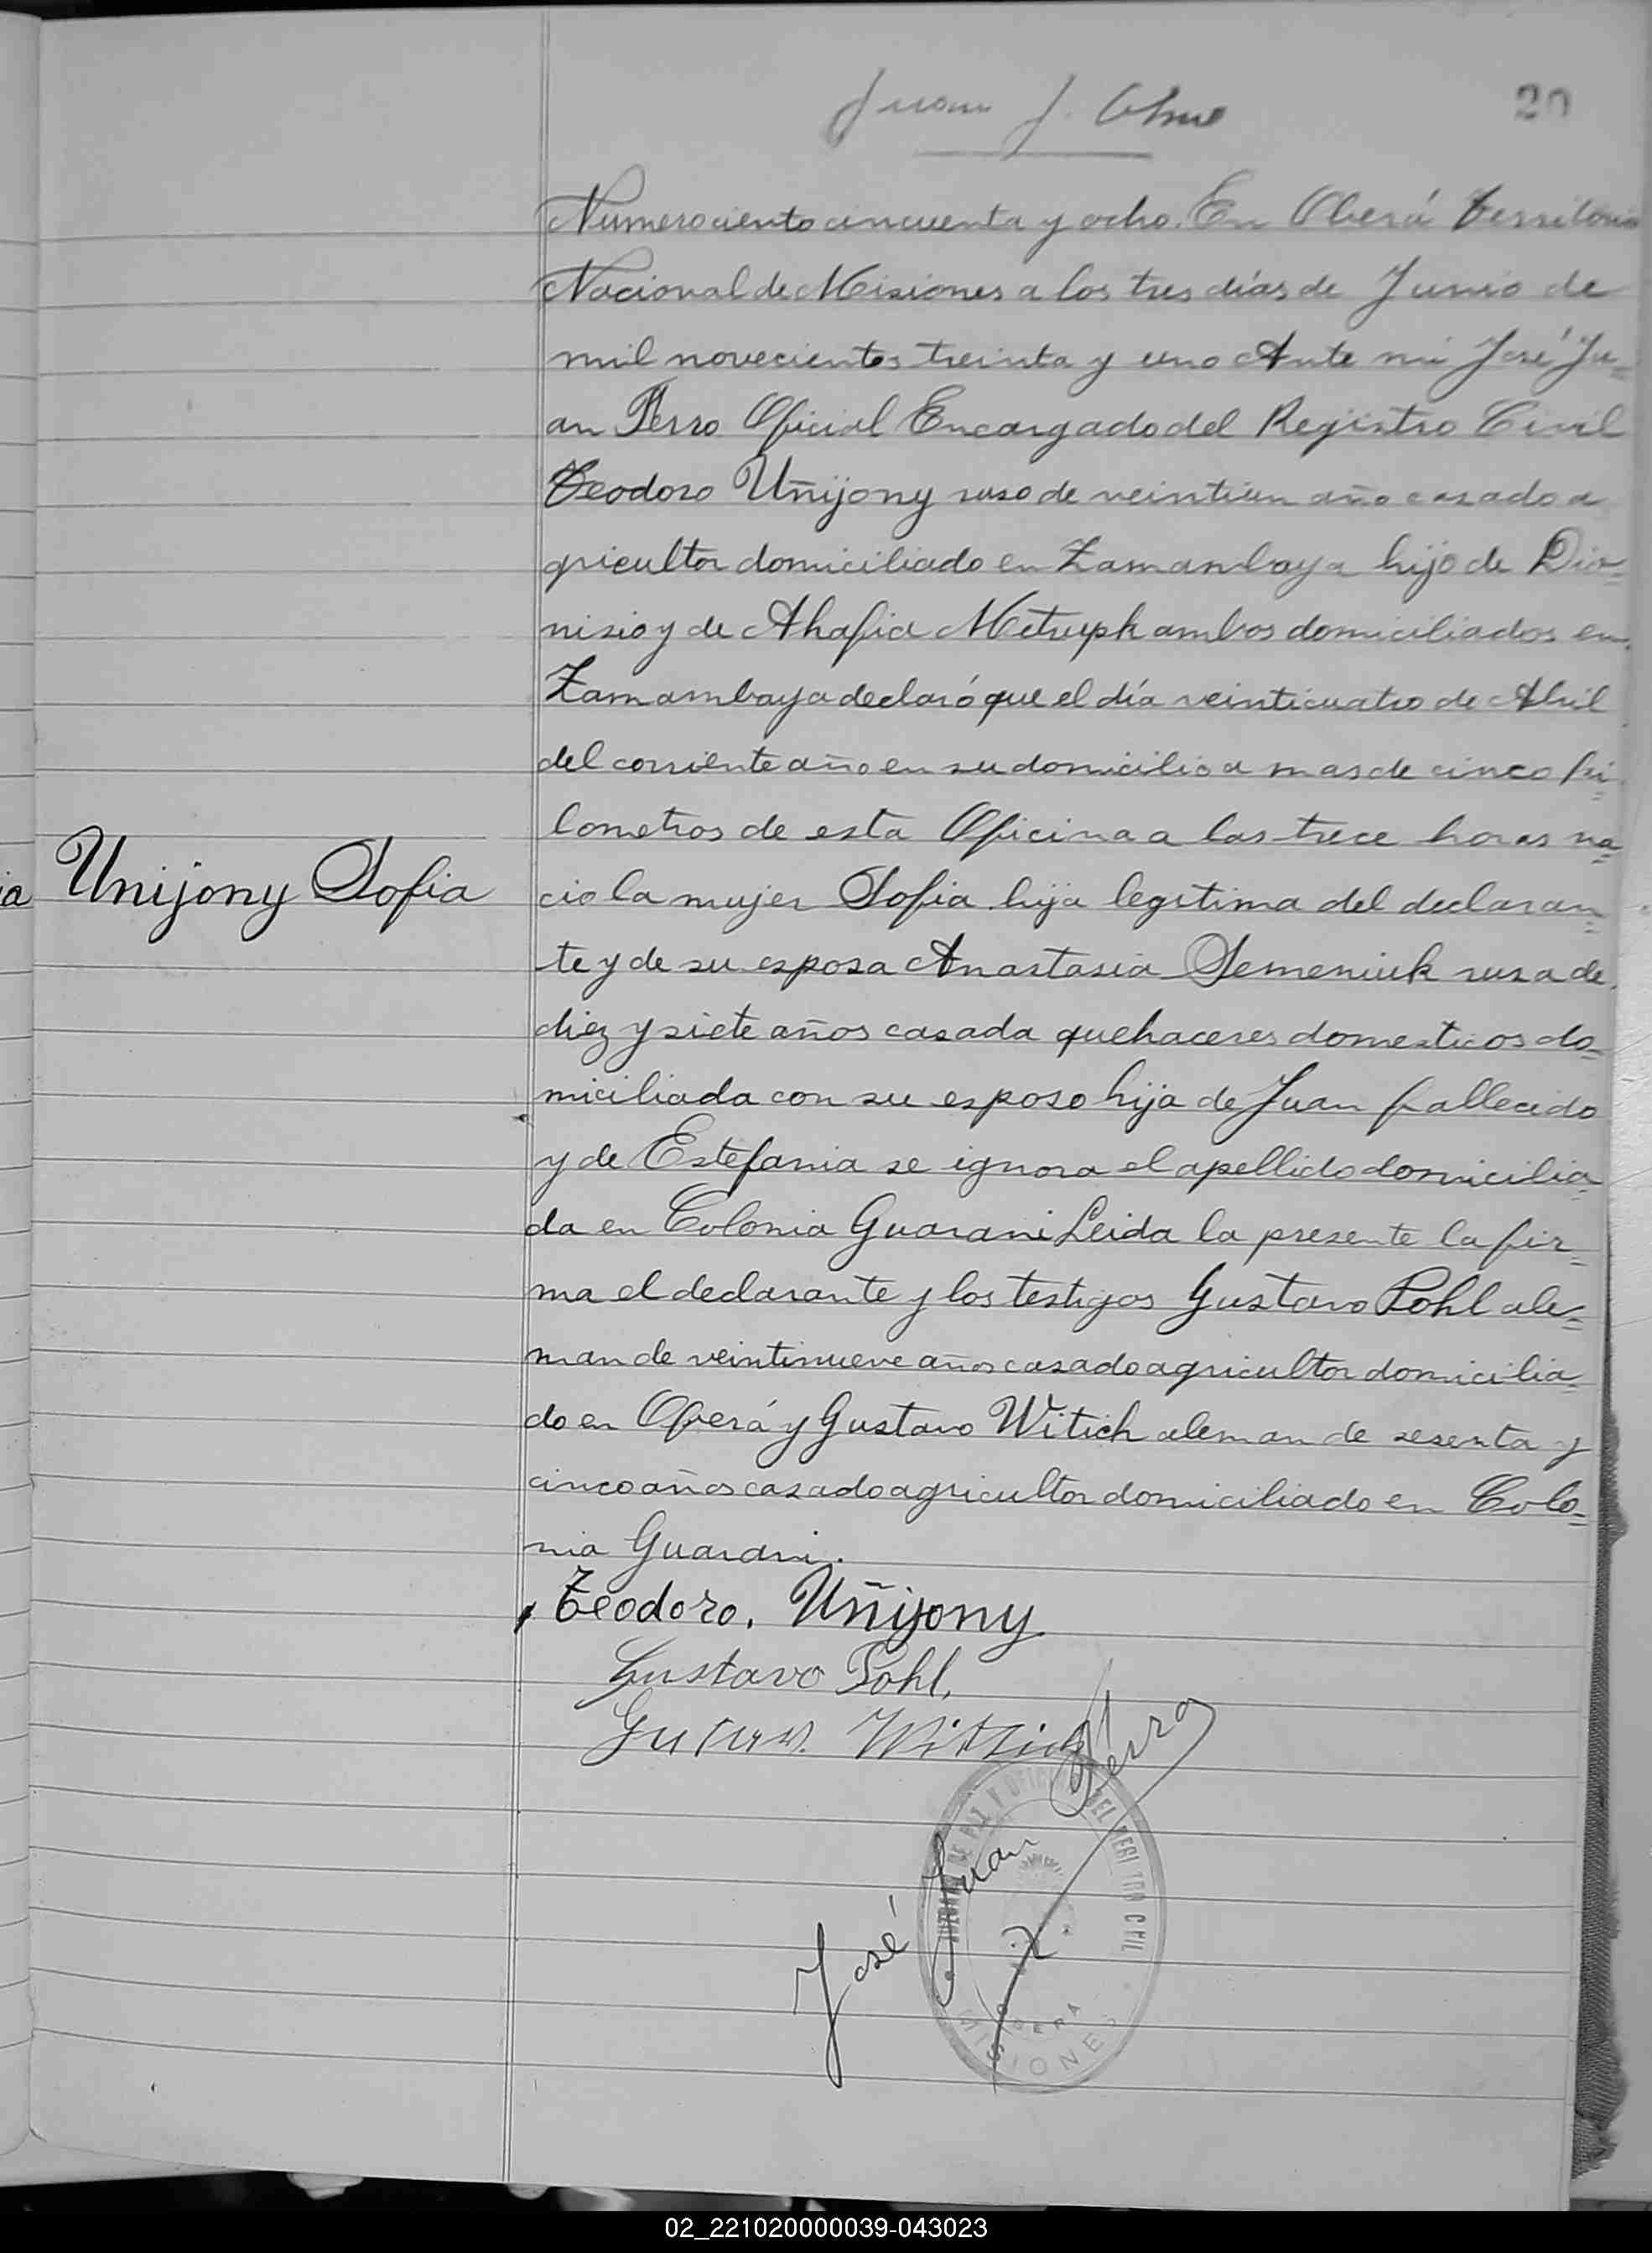 Juan J.
20
Numero ciento cincuenta y ocho. En Oberá Territorio
Nacional de Misiones a los tres días de Junio de
mil novecientos treinta y uno Ante mi José Ju=
an Perro Oficial Encargado del Registro Civil
Teodoro Uñijony ruso de veintiun año casado a
gricultor domiciliado en Zamambaya hijo de Dio=
nisio y de Ahafia Metrupk ambos domiciliados en
Zamambaya declaró que el día veinticuatro de Abril
del corriente año en su domicilio a mas de cinco ki=
lometros de esta Oficina a las trece horas na=
cio la mujer Sofia hija legitima del declaran=
Unijony Sofia
te y de su esposa Anastasia Semeniuk rusa de
diez y siete años casada quehaceres domesticos do=
miciliada con su esposo hija de Juan fallecido
y de Estefania se ignora el apellido domicilia=
da en Colonia Guarani Leida la presente la fir=
ma el declarante y los testigos Gustavo Pohl ale=
man de veintinueve años casado agricultor domicilia=
do en Oberá y Gustavo Witich aleman de sesenta y
cinco años casado agricultor domiciliado en Colo=
nia Guarani.
Teodoro. Uñijony
Gustavo Pohl,
Gustav. Witzich
José Juan Perro
DE PAZ Y OFIC DEL REGI TRO C VIL
OBERA
MISIONES
02_221020000039-043023